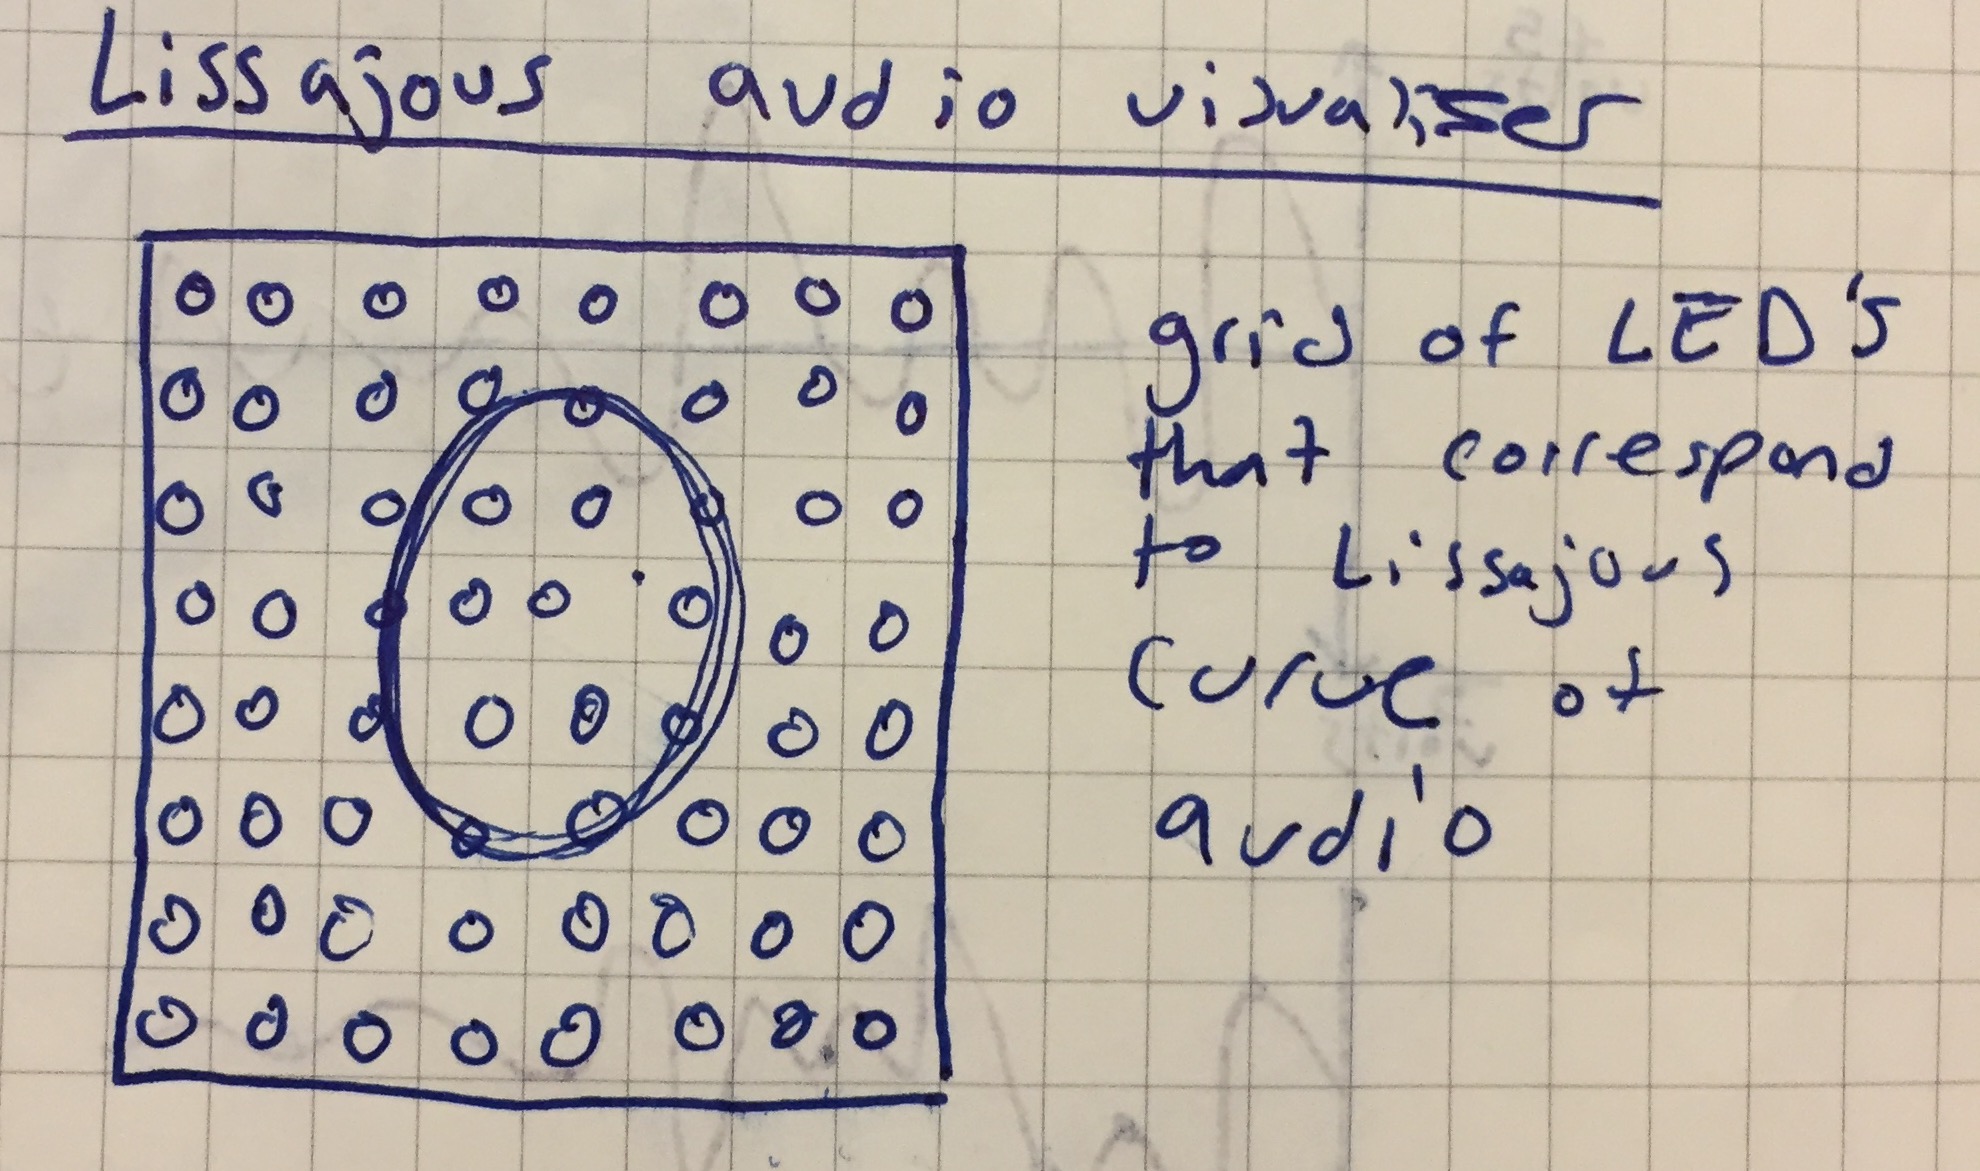 Lissajous audio visualiser
grid of LED's
that correspond
to Lissajous
curve of
audio